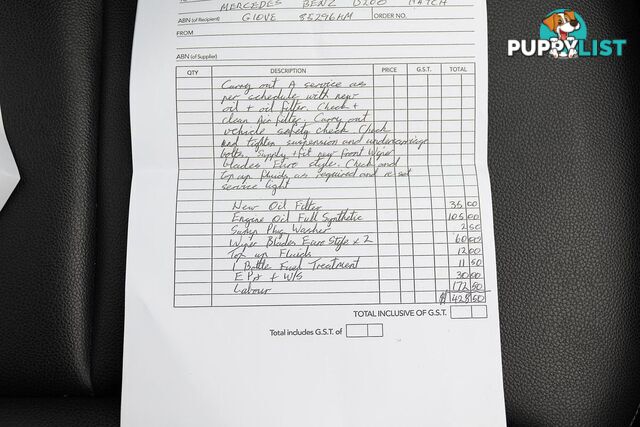 MERCEDES BENZ D200 HATCH
ABN (of Recipient) GIOVE 85296HM ORDER NO.
FROM
ABN (of Supplier)
QTY DESCRIPTION PRICE G.S.T. TOTAL
Carry out A service as
per schedule with new
oil + oil filter. Check +
clean Air filter. Carry out
vehicle safety check Check
and tighten suspension and undercarriage
bolts. Supply + fit new front Wiper
blades Euro style. Check and
Top up fluids as required and re-set
service light
New Oil Filter 35 00
Engine Oil Full Synthetic 105 00
Sump Plug Washer 2 50
Wiper Blades Euro Style x 2 60 00
Top up Fluids 12 00
1 Bottle Fuel Treatment 11 50
E P + W/S 30 00
Labour 172 50
$ 428 50
TOTAL INCLUSIVE OF G.S.T.
Total includes G.S.T. of
PUPPYLIST